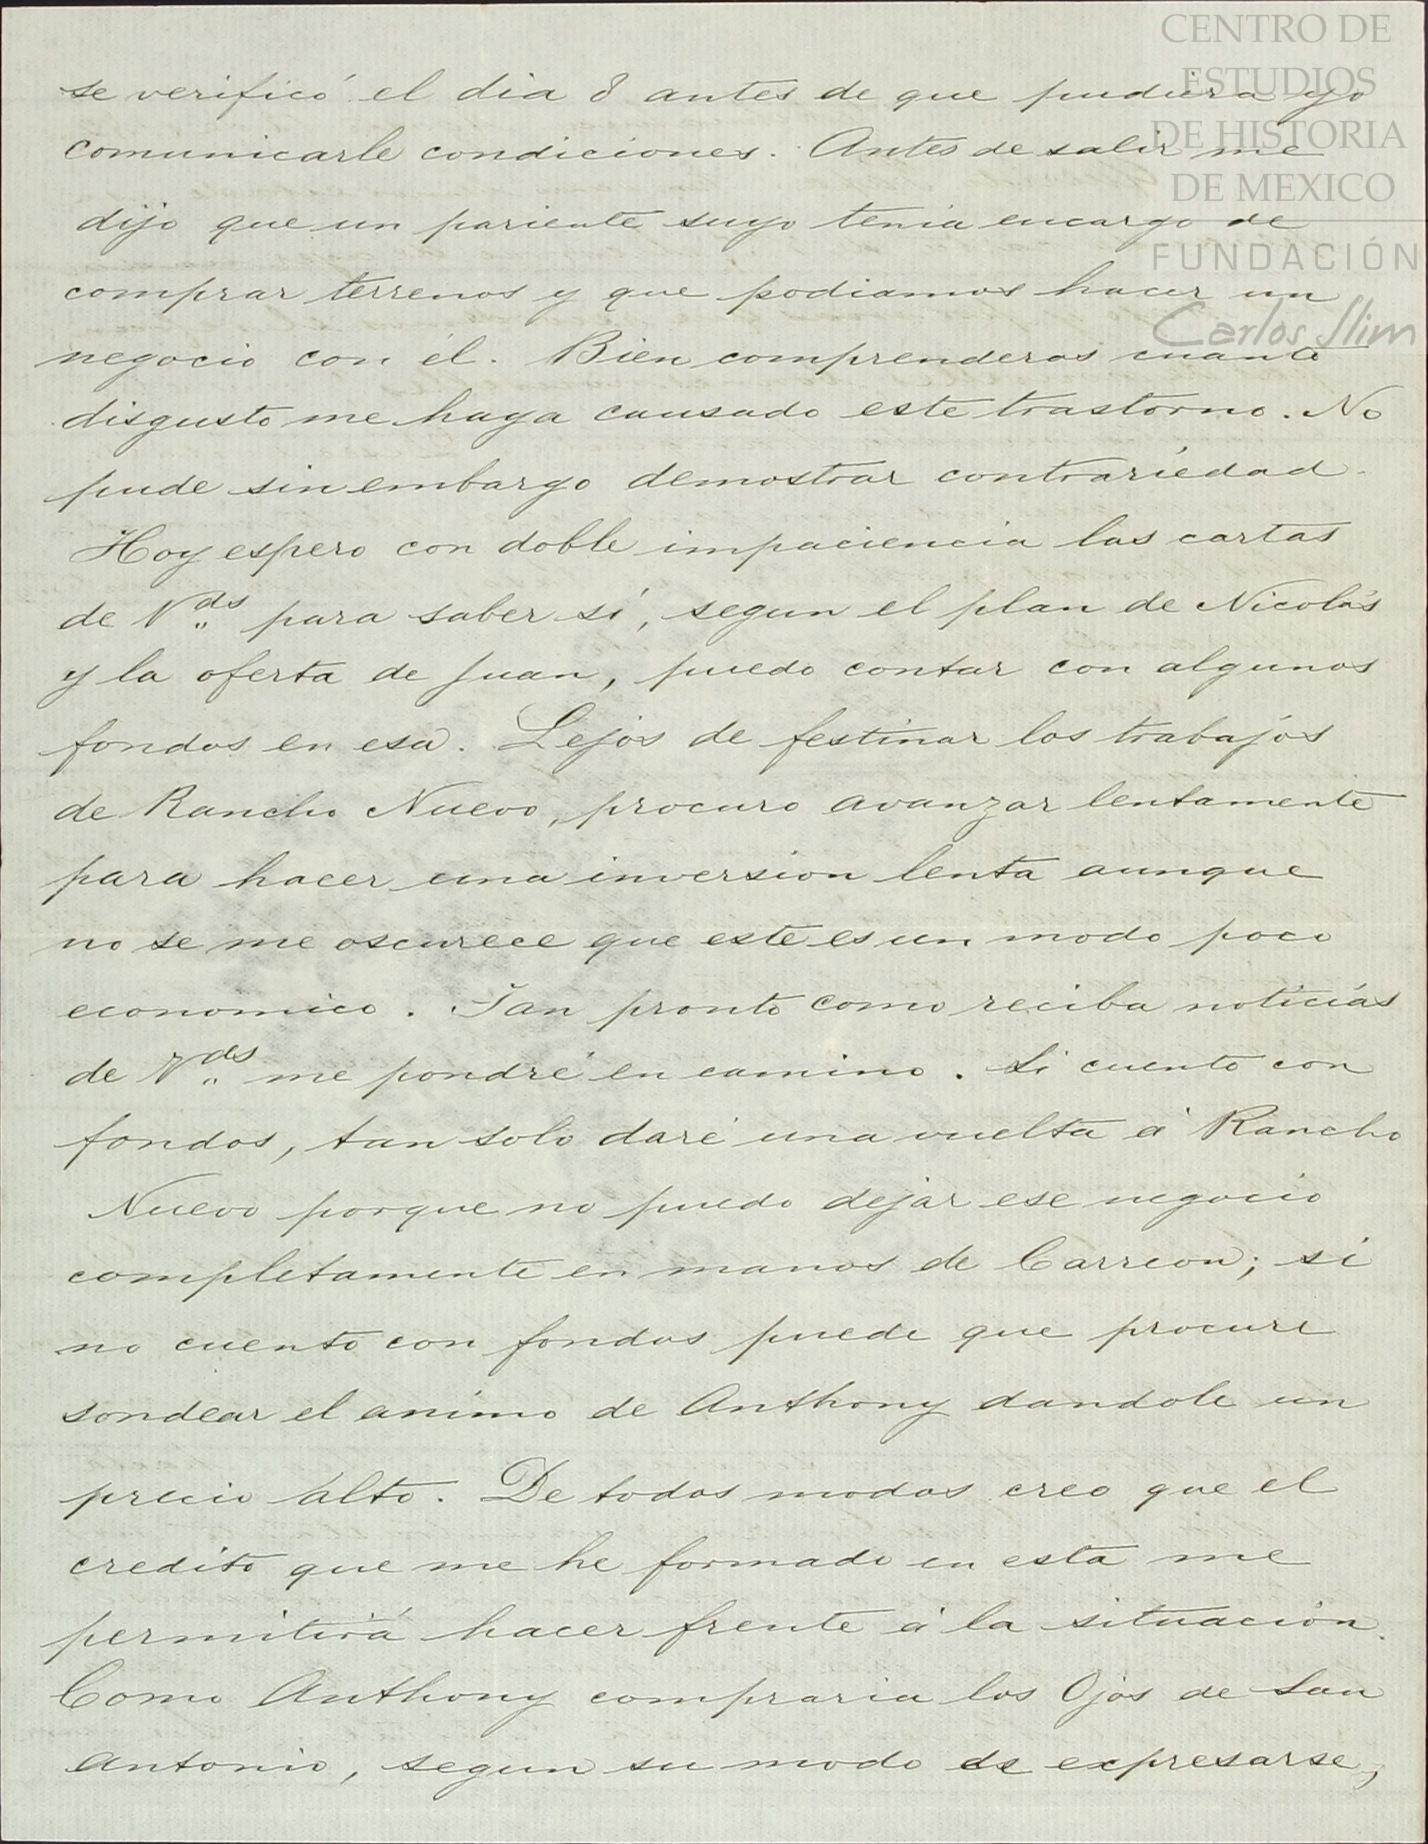 CENTRO DE
ESTUDIOS
DE HISTORIA
DE MEXICO
FUNDACIÓN
Carlos Slim
se verificó el dia 8 antes de que pudiera yo
comunicarle condiciones. Antes de salir me
dijo que un pariente suyo tenia encargo de
comprar terrenos y que podiamos hacer un
negocio con él. Bien comprenderas cuanto
disgusto me haya causado este trastorno. No
pude sin embargo demostrar contrariedad.
Hoy espero con doble impaciencia las cartas
de Vds para saber si, segun el plan de Nicolás
y la oferta de Juan, puedo contar con algunos
fondos en esa. Lejos de festinar los trabajos
de Rancho Nuevo, procuro avanzar lentamente
para hacer una inversion lenta aunque
no se me oscurece que este es un modo poco
economico. Tan pronto como reciba noticias
de Vds me pondré en camino. Si cuento con
fondos, tan solo daré una vuelta á Rancho
Nuevo porque no puedo dejar ese negocio
completamente en manos de Carreon; si
no cuento con fondos puede que procure
sondear el animo de Anthony dandole un
precio alto. De todos modos creo que el
credito que me he formado en esta me
permitirá hacer frente á la situación.
Como Anthony compraria los Ojos de San
Antonio, segun su modo de expresarse,